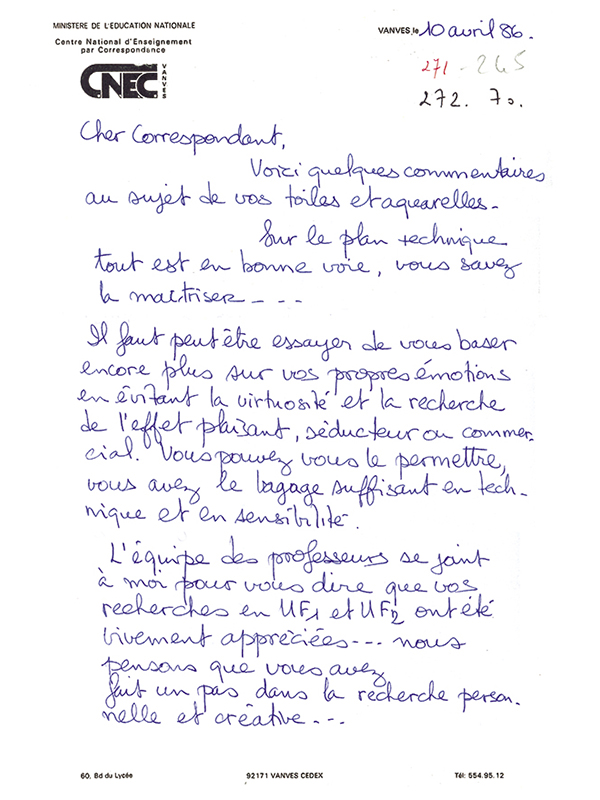 MINISTERE DE L'EDUCATION NATIONALE
Centre National d'Enseignement
par Correspondance
CNEC VANVES
VANVES le 10 avril 86.
271 - 245
272. 70.
Cher Correspondant,
Voici quelques commentaires
au sujet de vos toiles et aquarelles.
Sur le plan technique
tout est en bonne voie, vous savez
la maîtriser - - -
Il faut peut être essayer de vous baser
encore plus sur vos propres émotions
en évitant la virtuosité et la recherche
de l'effet plaisant, séducteur ou commer-
cial. Vous pouvez vous le permettre,
vous avez le bagage suffisant en tech-
nique et en sensibilité.
L'équipe des professeurs se joint
à moi pour vous dire que vos
recherches en UF1 et UF2 ont été
vivement appréciées --- nous
pensons que vous avez
fait un pas dans la recherche person-
nelle et créative ---
60. Bd du Lycée
92171 VANVES CEDEX
Tél: 554.95.12